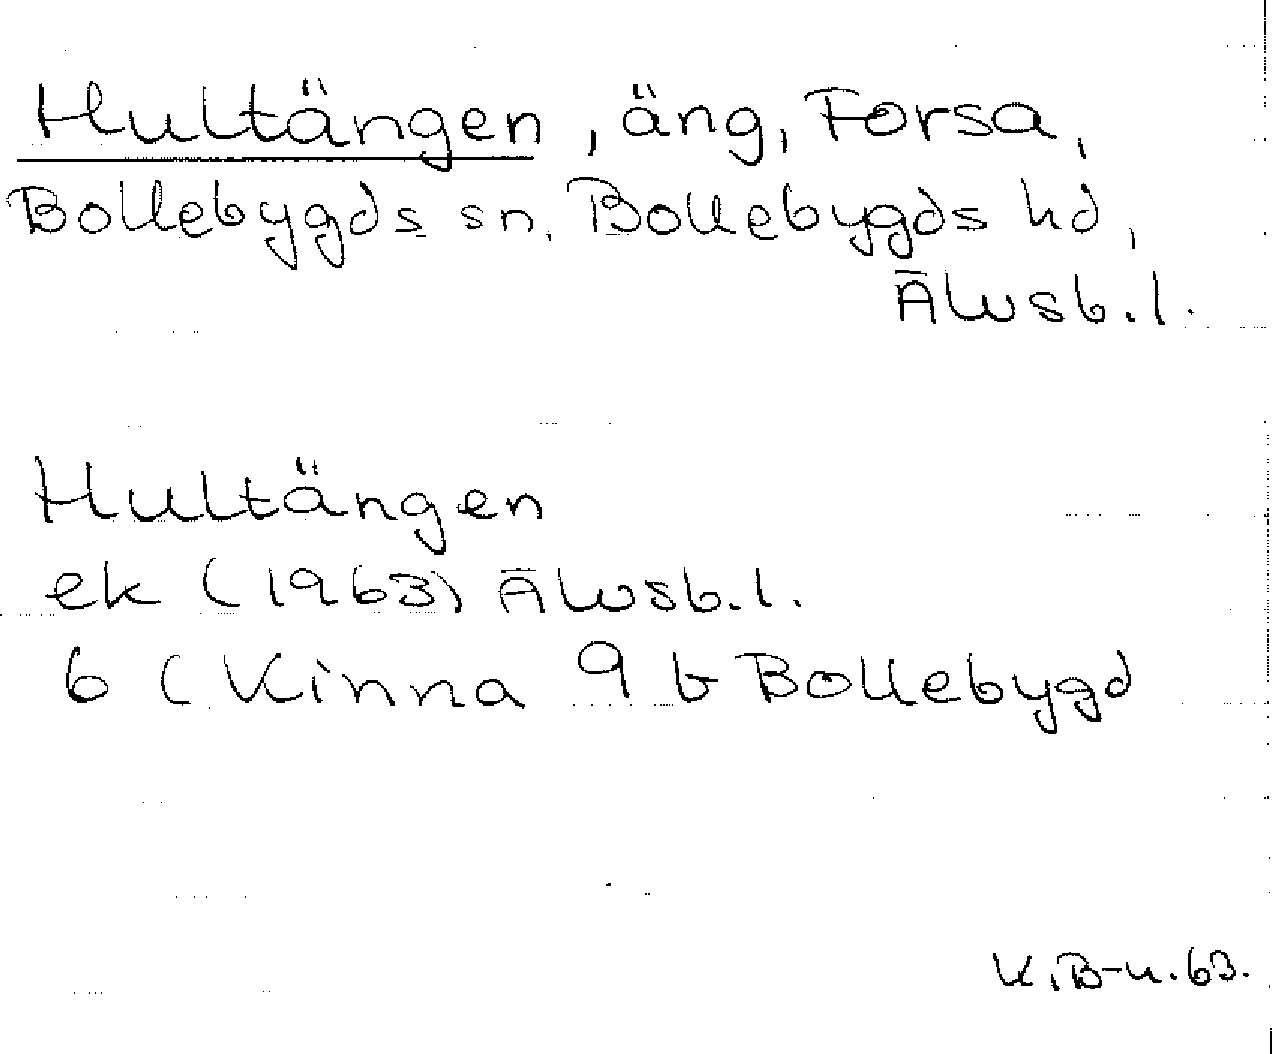 Hultängen, äng, Forsa,
Bollebygds sn, Bollebygds hd,
Älvsb.l.
Hultängen
ek (1963) Älvsb.l.
6 (Kinna 9 b Bollebygd
K.B-n.63.